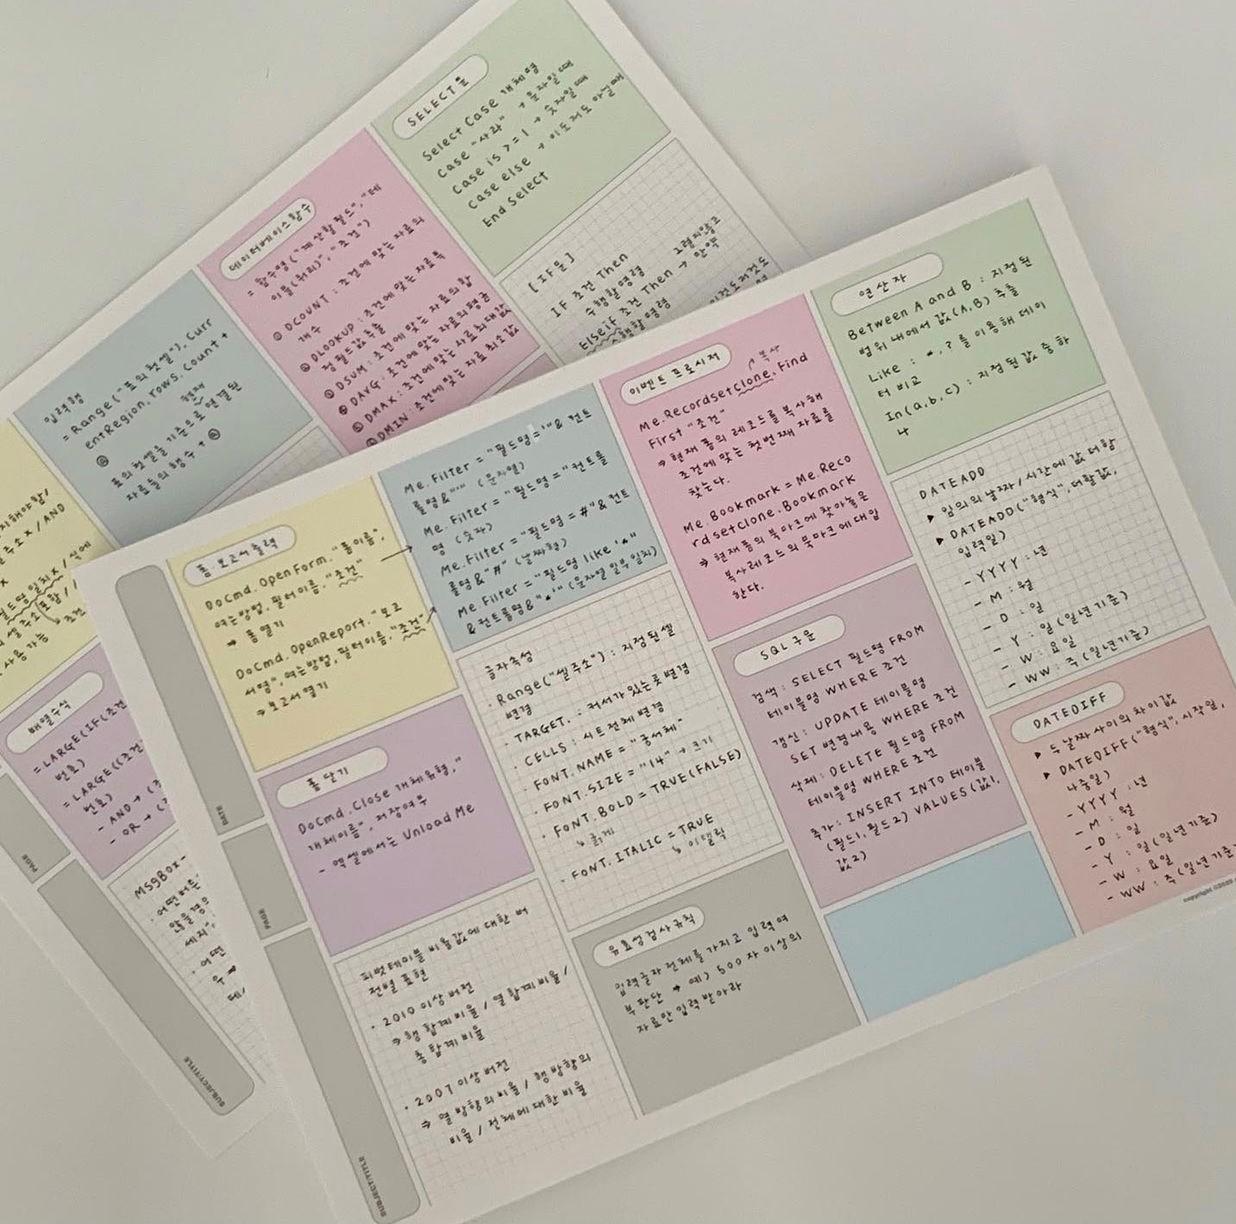 SELECT문
Select Case 개체명
Case "사과" → 문자일 때
Case is >= 1 → 숫자일 때
Case else → 이도저도 아닐 때
End Select
[IF문]
IF 조건 Then
수행할명령 그렇지않고
Elseif 조건 Then → 만약
데이터베이스함수
= 함수명("계산할필드", "테
이블(쿼리)", "조건")
① DCOUNT : 조건에 맞는 자료의
개수
② DLOOKUP : 조건에 맞는 자료 특
정필드값 추출
③ DSUM : 조건에 맞는 자료의 합
④ DAVG : 조건에 맞는 자료의평균
⑤ DMAX : 조건에 맞는 자료최대값
⑥ DMIN : 조건에 맞는 자료 최소값
입력행
= Range("표의첫셀"). Curr
entRegion. rows. Count +
현재
표의 첫셀을 기준으로 연결된
자료들의 행수 +
배열수식
= LARGE(IF(조건
번호)
= LARGE((조건
번호)
- AND →
- OR →
MSGBOX
PAGE
SUBJECT/TITLE
폼 보고서 출력
DoCmd. OpenForm. "폼이름",
여는방법, 필터이름, "조건"
⇒ 폼 열기
DoCmd. OpenReport. "보고
서명", 여는방법, 필터이름, "조건"
⇒ 보고서열기
Me. Filter = "필드명='"& 컨트
롤명&"'" (문자열)
Me. Filter = "필드명 = "컨트롤
명 (숫자)
Me. Filter = "필드명 = #"&컨트
롤명&"#" (날짜형)
Me Filter = "필드명 like '*"
&컨트롤명&"*'" (문자열 일부 일치)
이벤트 프로시저
복사
Me. RecordsetClone. Find
First "조건"
⇒ 현재 폼의 레코드를 복사해
조건에 맞는 첫번째 자료를
찾는다.
Me. Bookmark = Me. Reco
rdsetClone. Bookmark
⇒ 현재폼의 북마크에 찾아놓은
복사레코드의 북마크에 대입
한다.
연산자
Between A and B : 지정된
범위 내에서 값(A,B) 추출
Like : *, ? 를 이용해 데이
터 비교
In(a,b,c) : 지정된값 중 하
나
폼 닫기
DoCmd. Close 개체유형, "
개체이름", 저장여부
- 엑셀에서는 Unload Me
글자속성
· Range("셀주소") : 지정된 셀
변경
· TARGET. : 커서가 있는 곳 변경
· CELLS : 시트전체 변경
· FONT. NAME = "궁서체"
· FONT. SIZE = "14" → 크기
· FONT. BOLD = TRUE(FALSE)
↳ 굵게
· FONT. ITALIC = TRUE
↳ 이탤릭
SQL구문
검색 : SELECT 필드명 FROM
테이블명 WHERE 조건
갱신 : UPDATE 테이블명
SET 변경내용 WHERE 조건
삭제 : DELETE 필드명 FROM
테이블명 WHERE 조건
추가 : INSERT INTO 테이블
(필드1, 필드2) VALUES (값1,
값2)
DATEADD
▶ 임의의 날짜/시간에 값 더함
▶ DATEADD("형식", 더할값,
입력일)
- YYYY : 년
- M : 월
- D : 일
- Y : 일 (일년기준)
- W : 요일
- WW : 주 (일년기준)
DATEDIFF
▶ 두 날짜사이의 차이값
▶ DATEDIFF("형식", 시작일,
나중일)
- YYYY : 년
- M : 월
- D : 일
- Y : 일(일년기준)
- W : 요일
- WW : 주(일년기준
피벗테이블 비율값에 대한 버
전별 표현
· 2010 이상 버전
⇒ 행 합계비율 / 열 합계비율/
총 합계 비율
· 2007 이상 버전
⇒ 열 방향의비율 / 행방향의
비율 / 전체에 대한 비율
유효성검사규칙
입력글자 전체를 가지고 입력 여
부 판단 → 예) 500자 이상의
자료만 입력 받아라
DATE
PAGE
SUBJECT/TITLE